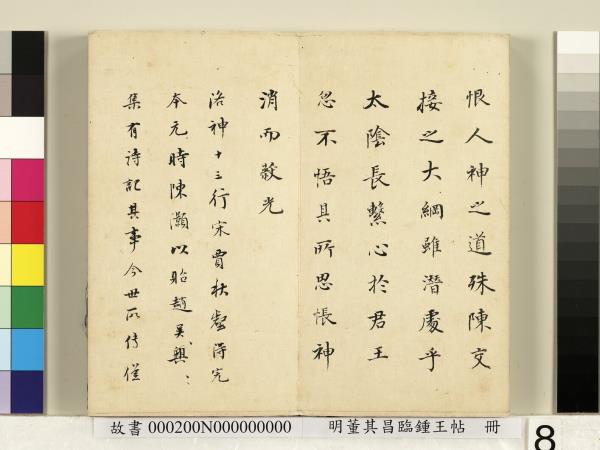 恨人神之道殊陳交
接之大綱雖潛處乎
太陰長繫心於君王
忽不悟其所思悵神
消而蔽光
洛神十三行宋賈秋壑得完
本元時陳灝以貽趙吳興〻
集有詩記其事今世所傳僅
故書 000200N000000000
明董其昌臨鍾王帖 冊
8